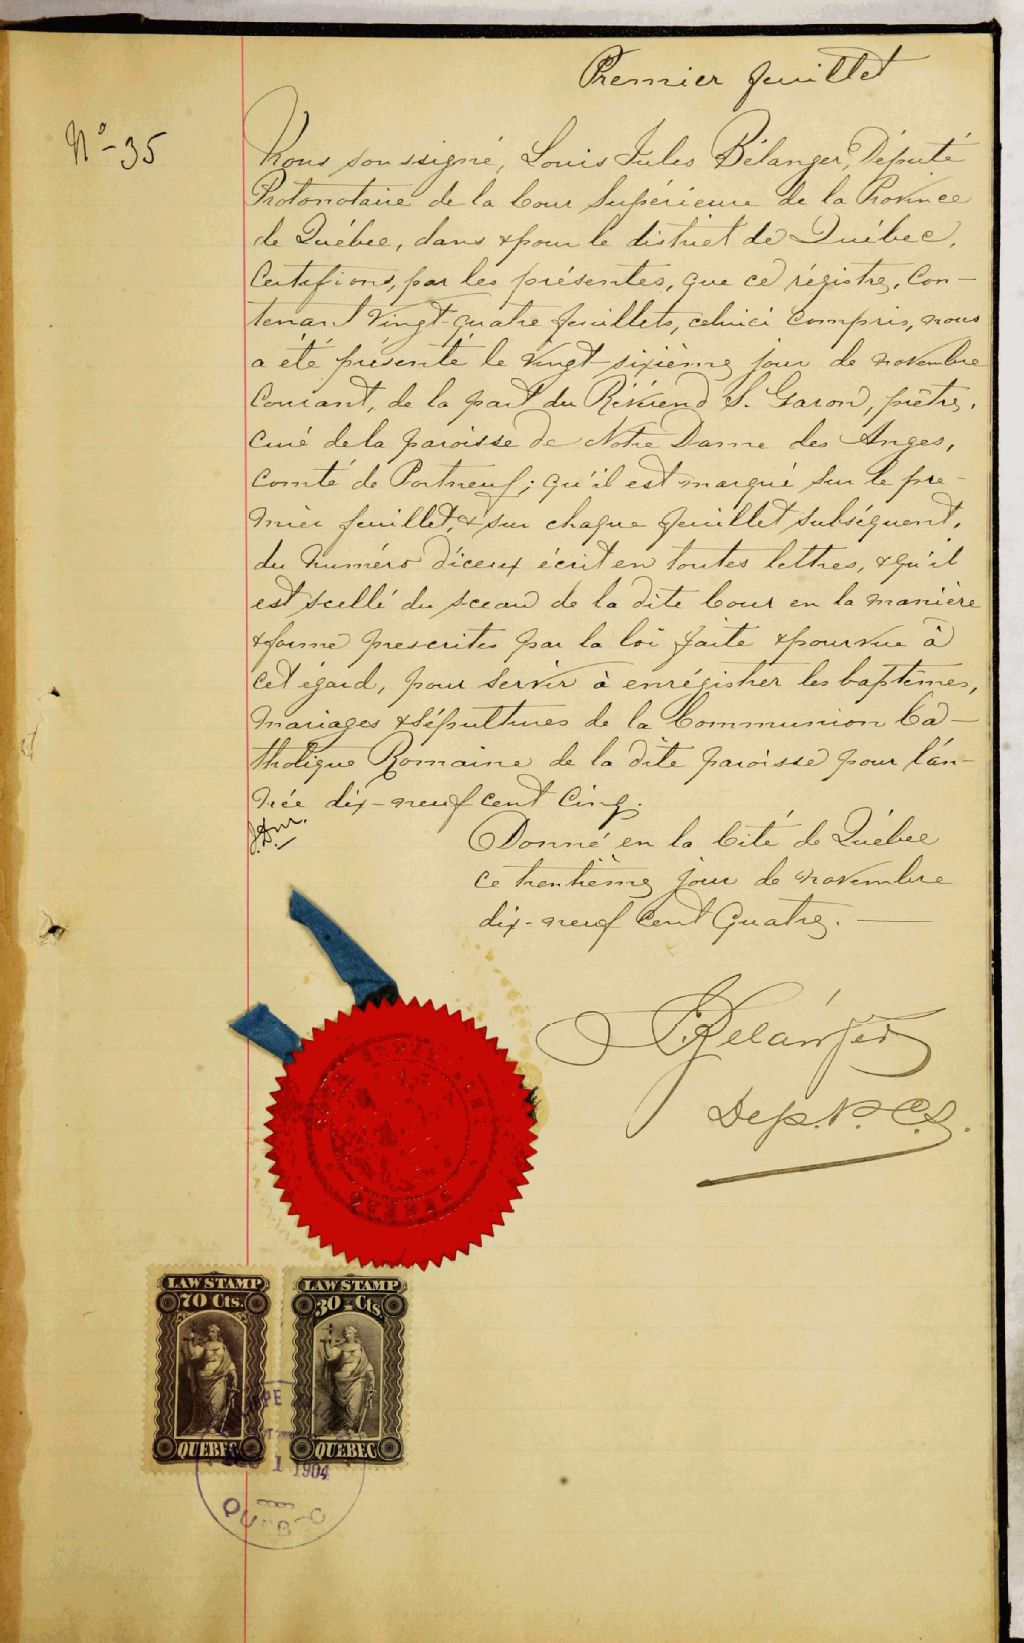 Premier feuillet
No - 35
Nous soussigné, Louis Jules Bélanger, Député
Protonotaire de la Cour Supérieure de la Province
de Québec, dans & pour le district de Québec,
Certifions, par les présentes, que ce régistre, Con-
tenant Vingt-quatre feuillets, celuici compris, nous
a été présenté le Vingt-sixième jour de novembre
Courant, de la part du Révérend S. Garon, prêtre,
curé de la paroisse de Notre Dame des Anges,
Comté de Portneuf; qu'il est marqué sur le pre-
mier feuillet, & sur chaque feuillet subséquent,
du numéro d'iceux écrit en toutes lettres, & qu'il
est scellé du sceau de la dite Cour en la manière
& forme prescrites par la loi faite & pourvue à
cet égard, pour servir à enrégistrer les baptêmes,
mariages & sépultures de la Communion Ca-
tholique Romaine de la dite paroisse pour l'an-
née dix-neuf cent Cinq.
Donné en la Cité de Québec
ce trentième jour de novembre
dix-neuf cent quatre. —
Bélanger
Dep. P. C. S.
LAW STAMP
70 Cts.
QUEBEC
LAW STAMP
30 Cts.
QUEBEC
1 1904
QUEBEC